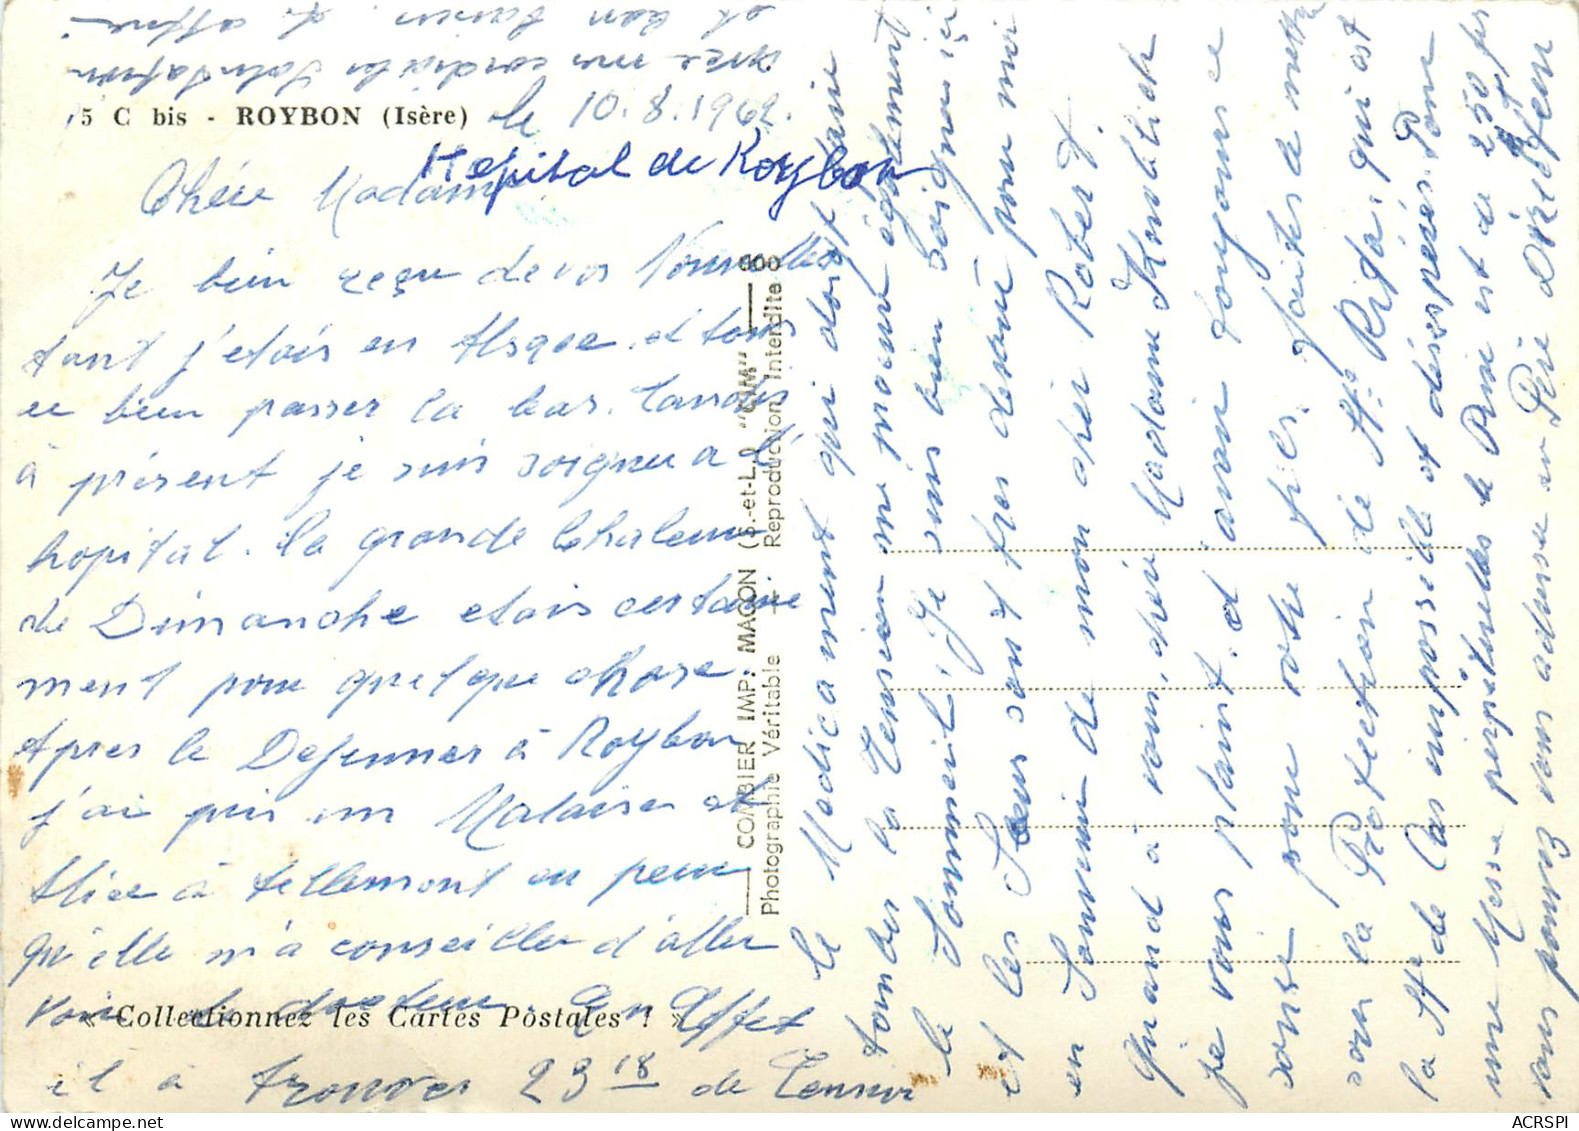 5 C bis - ROYBON (Isère)
le 10.8.1962.
Hopital de Roybon
Chére Madame
Je bien reçu de vos Nouvelles
tant j'etais en Alsace. et tous
ce bien passer la bas. Tandis
à présent je suis soigneu a l'
hopital. la grande Chaleur
de Dimanche etais certaine
ment pour quelque chose
Apres le Dejeuner à Roybon
j'ai pris un Malaise et
Alice à tellement eu peur
qu'elle m'a conseiller d'aller
voir le docteur. En Effet
il à trouver 23 18 de Tension
le Medicament qui doit faire
tomber la Tension me procure également
le Sommeil, Je suis bien soigneu ici
et les Sœurs sont tres devoué pour moi
en Souvenir de mon cher Robert.
Quand à vous, chére Madame
je vous plaint. et avoir toujours ce
pour votre fils. faites le mettre
sous la Protection de Ste Rita, qui est
la Ste de Cas impossible et désespérés. Pour
une Messe perpétuelles le Prix est de 250 frs
vous pouvez vous adresser au Père Directeur
avec mes cordiales Salutation
et bon
COMBIER IMP. MACON (S.-et-L.) "CIM"
Photographie Véritable - Reproduction Interdite
« Collectionnez les Cartes Postales ! »
ACRSPI